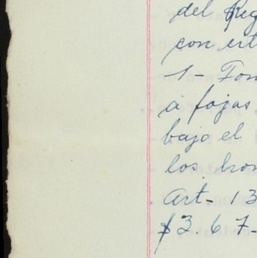 del Reg
con est
1 - Tom
a fojas
bajo el
los bon
Art- 13
$3.67-